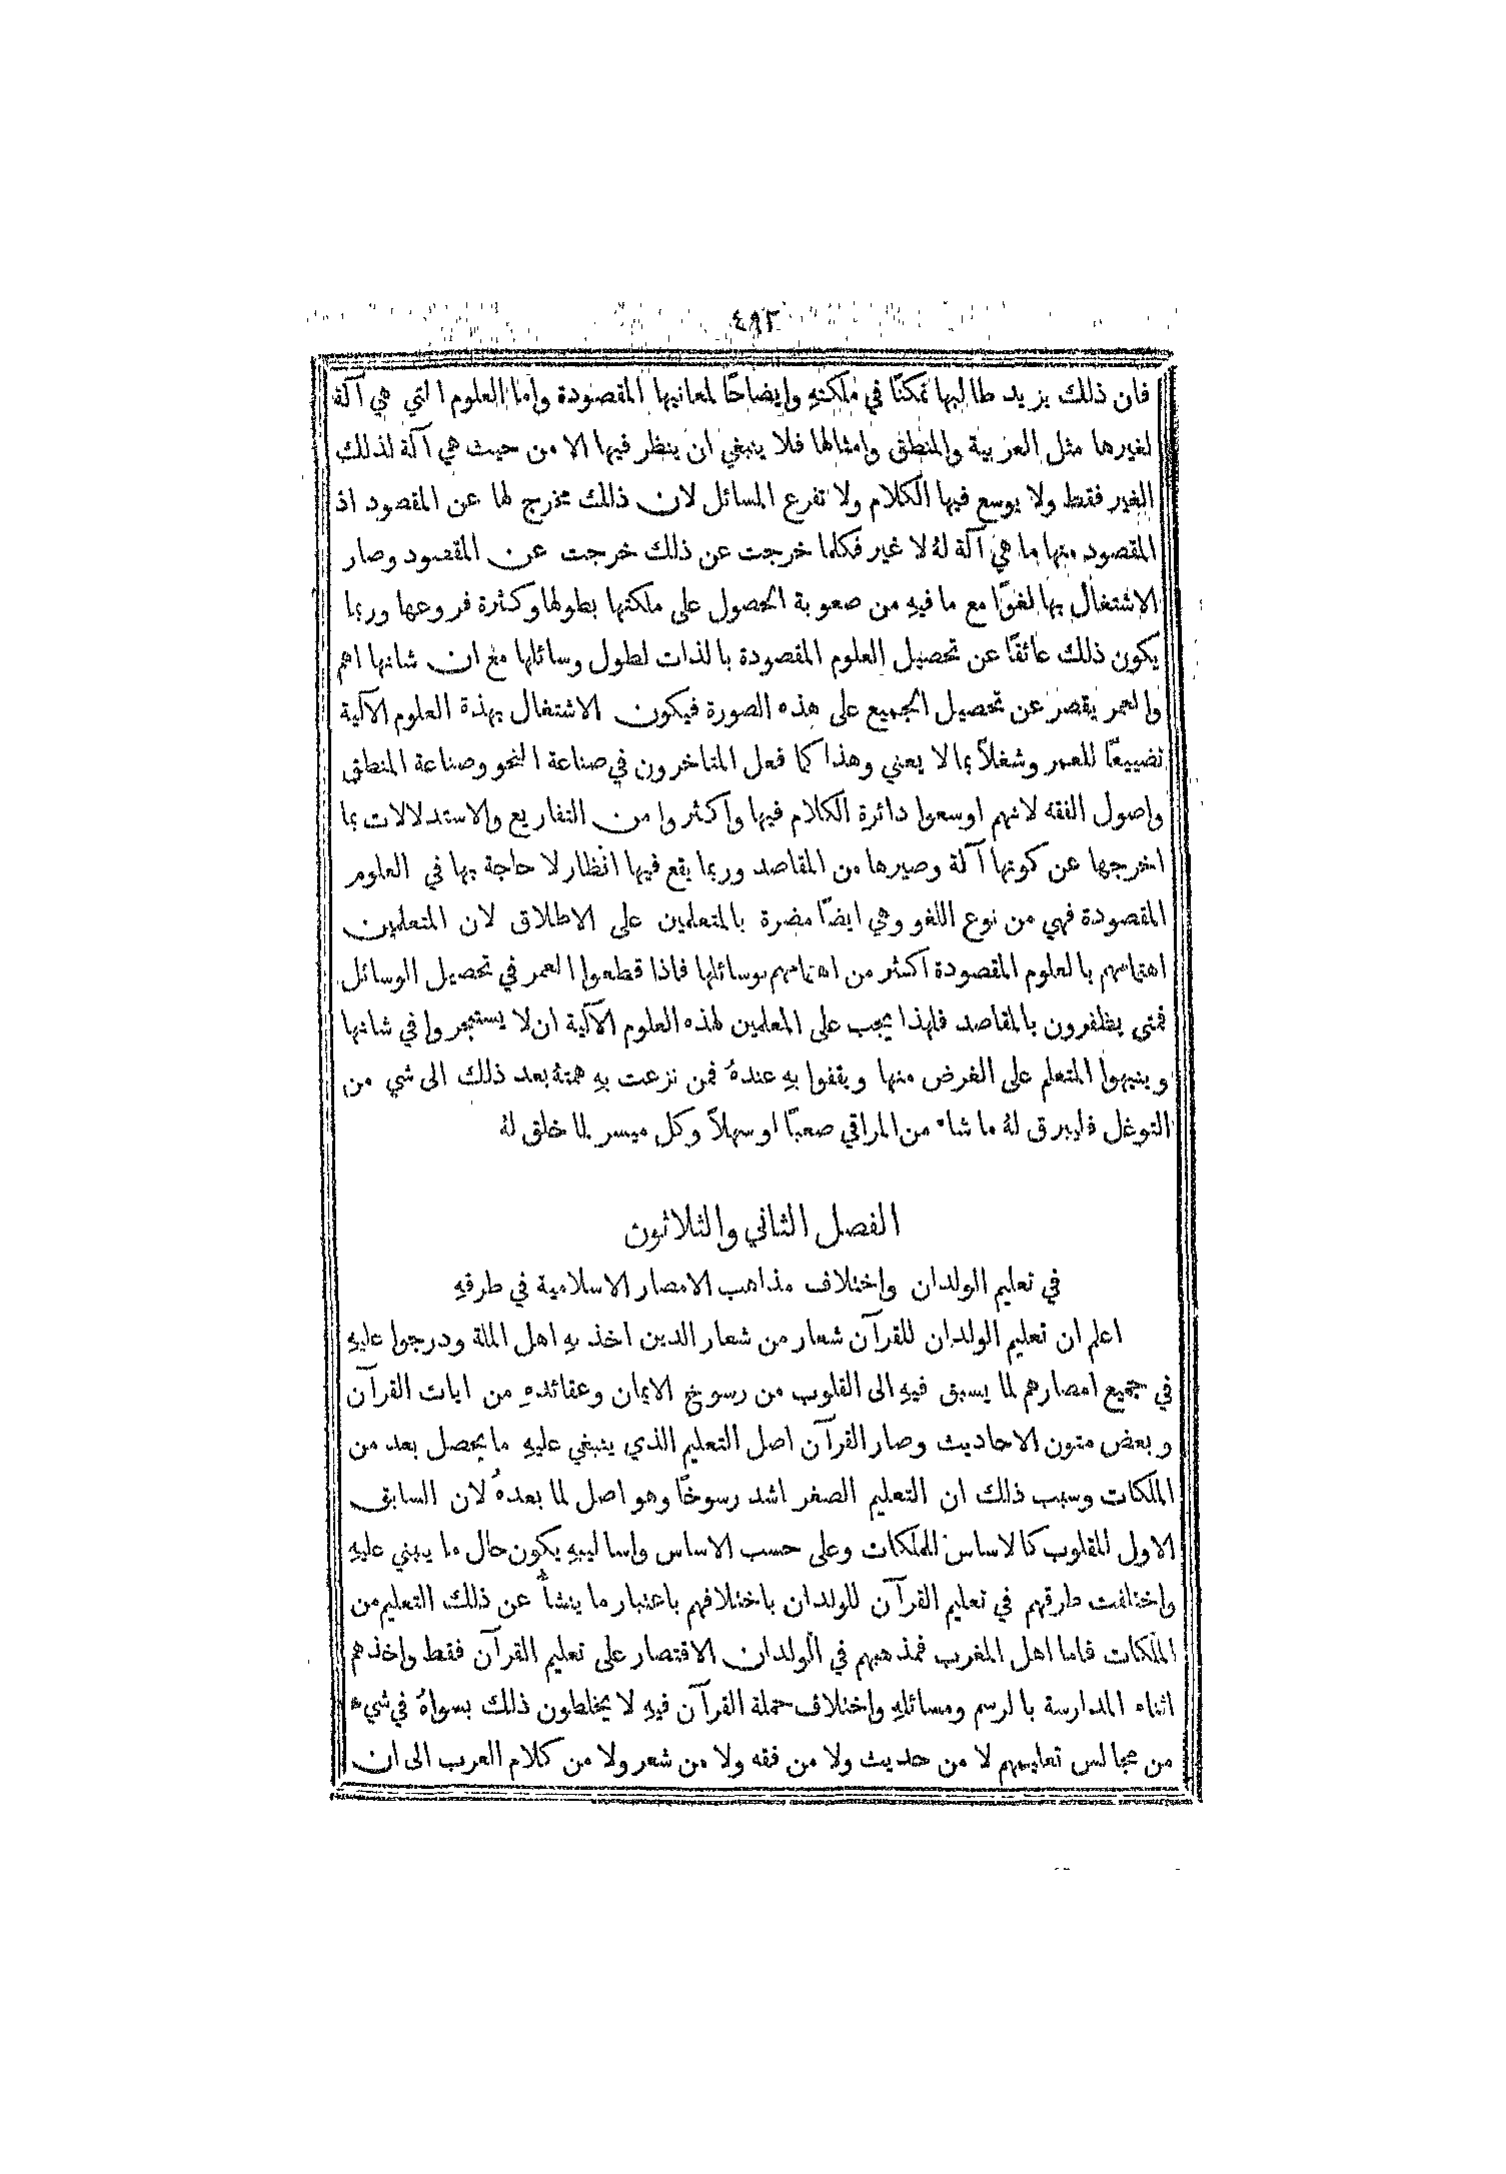 ٤٩٣
فان ذلك يزيد طالبها تمكنًا في ملكتهِ وايضاحًا لمعانيها المقصودة واما العلوم التي هي آلة
لغيرها مثل العربية والمنطق وامثالها فلا ينبغي ان ينظر فيها الا من حيث هي آلة لذلك
الغير فقط ولا يوسع فيها الكلام ولا تفرع المسائل لان ذلك مخرج لها عن المقصود اذ
المقصود منها ما هي آلة لهُ لا غير فكلما خرجت عن ذلك خرجت عن المقصود وصار
الاشتغال بها لغوًا مع ما فيهِ من صعوبة الحصول على ملكتها بطولها وكثرة فروعها وربما
يكون ذلك عائقًا عن تحصيل العلوم المقصودة بالذات لطول وسائلها مع ان شانها اهم
والعمر يقصر عن تحصيل الجميع على هذه الصورة فيكون الاشتغال بهذة العلوم الآلية
تضييعًا للعمر وشغلاً بما لا يعني وهذا كما فعل المتاخرون في صناعة النحو وصناعة المنطق
واصول الفقه لانهم اوسعوا دائرة الكلام فيها واكثروا من التفاريع والاستدلالات بما
اخرجها عن كونها آلة وصيرها من المقاصد وربما يقع فيها انظار لا حاجة بها في العلوم
المقصودة فهي من نوع اللغو وهي ايضًا مضرة بالمتعلمين على الاطلاق لان المتعلمين
اهتمامهم بالعلوم المقصودة اكثر من اهتمامهم بوسائلها فاذا قطعوا العمر في تحصيل الوسائل
فمتى يظفرون بالمقاصد فلهذا يجب على المعلمين لهذه العلوم الآلية ان لا يستبحروا في شانها
وينبهوا المتعلم على الغرض منها ويقفوا بهِ عندهُ فمن نزعت بهِ همتهُ بعد ذلك الى شي من
التوغل فليرق لهُ ما شاء من المراقي صعبًا او سهلاً وكل ميسر لما خلق لهُ
الفصل الثاني والثلاثون
في تعليم الولدان واختلاف مذاهب الامصار الاسلامية في طرقهِ
اعلم ان تعليم الولدان للقرآن شعار من شعار الدين اخذ بهِ اهل الملة ودرجوا عليهِ
في جميع امصارهم لما يسبق فيهِ الى القلوب من رسوخ الايمان وعقائدهِ من ايات القرآن
وبعض متون الاحاديث وصار القرآن اصل التعليم الذي ينبغي عليهِ ما يحصل بعد من
الملكات وسبب ذلك ان التعليم الصغر اشد رسوخًا وهو اصل لما بعدهُ لان السابق
الاول للقلوب كالاساس للملكات وعلى حسب الاساس واساليبهِ يكون حال ما يبنى عليهِ
واختلفت طرقهم في تعليم القرآن للولدان باختلافهم باعتبار ما ينشأ عن ذلك التعليم من
الملكات فاما اهل المغرب فمذهبهم في الولدان الاقتصار على تعليم القرآن فقط واخذهم
اثناء المدارسة بالرسم ومسائلهِ واختلاف حملة القرآن فيهِ لا يخلطون ذلك بسواهُ في شيء
من مجالس تعليمهم لا من حديث ولا من فقه ولا من شعر ولا من كلام العرب الى ان